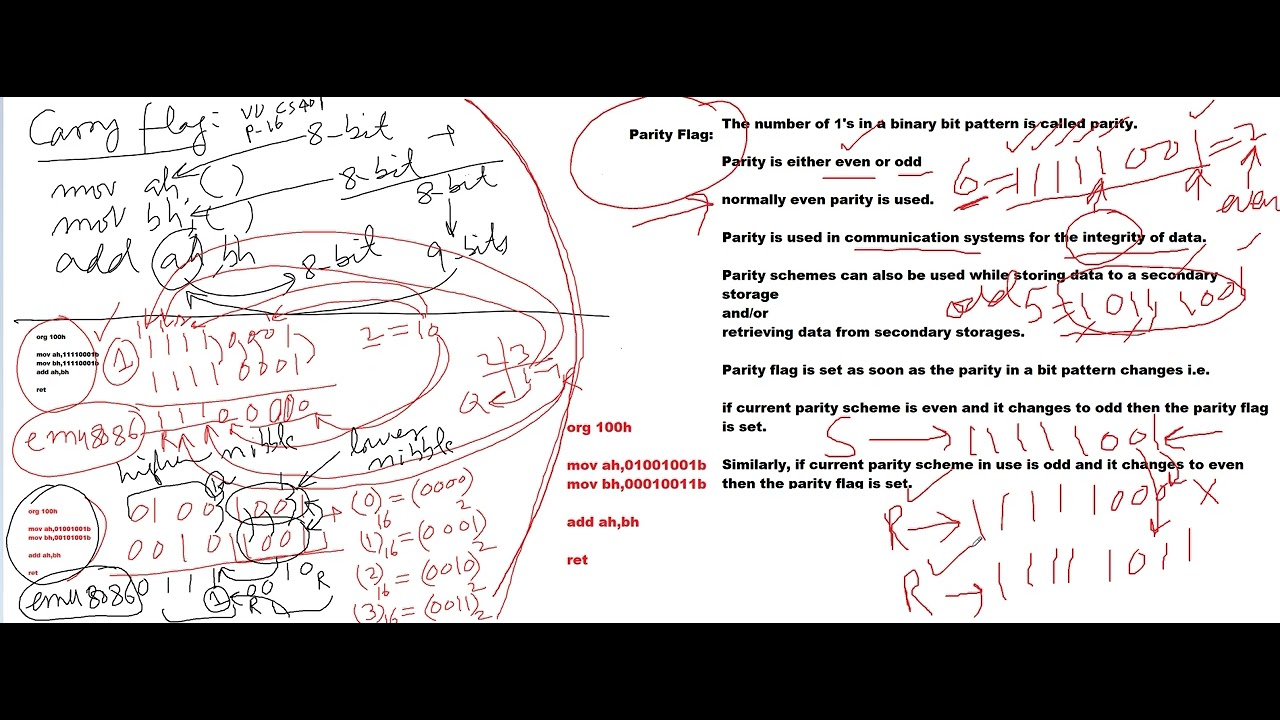 Carry flag:
VU CS401
P-16
8-bit +
mov ah ( ) 8-bit
mov bh, ( ) 8-bit
add ah, bh 8-bit 9-bits
org 100h
mov ah,11110001b
mov bh,11110001b
add ah,bh
ret
1
1111 0001
1111 0001
2 = 10
emu8086
higher nibble
lower nibble
org 100h
mov ah,01001001b
mov bh,00101001b
add ah,bh
ret
emu8086
0100 1001 +
0010 1001
(0)16 = (0000)2
(1)16 = (0001)2
(2)16 = (0010)2
(3)16 = (0011)2
Parity Flag:
The number of 1's in a binary bit pattern is called parity.
Parity is either even or odd
normally even parity is used.
Parity is used in communication systems for the integrity of data.
Parity schemes can also be used while storing data to a secondary
storage
and/or
retrieving data from secondary storages.
Parity flag is set as soon as the parity in a bit pattern changes i.e.
if current parity scheme is even and it changes to odd then the parity flag
is set.
Similarly, if current parity scheme in use is odd and it changes to even
then the parity flag is set.
6 = 11111001
even
odd 5 =
org 100h
mov ah,01001001b
mov bh,00010011b
add ah,bh
ret
S
R
R